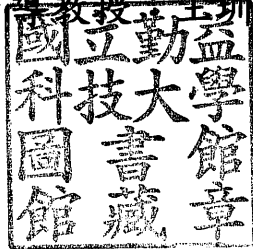 教授
國立勤益
科技大學
圖書館
館藏章